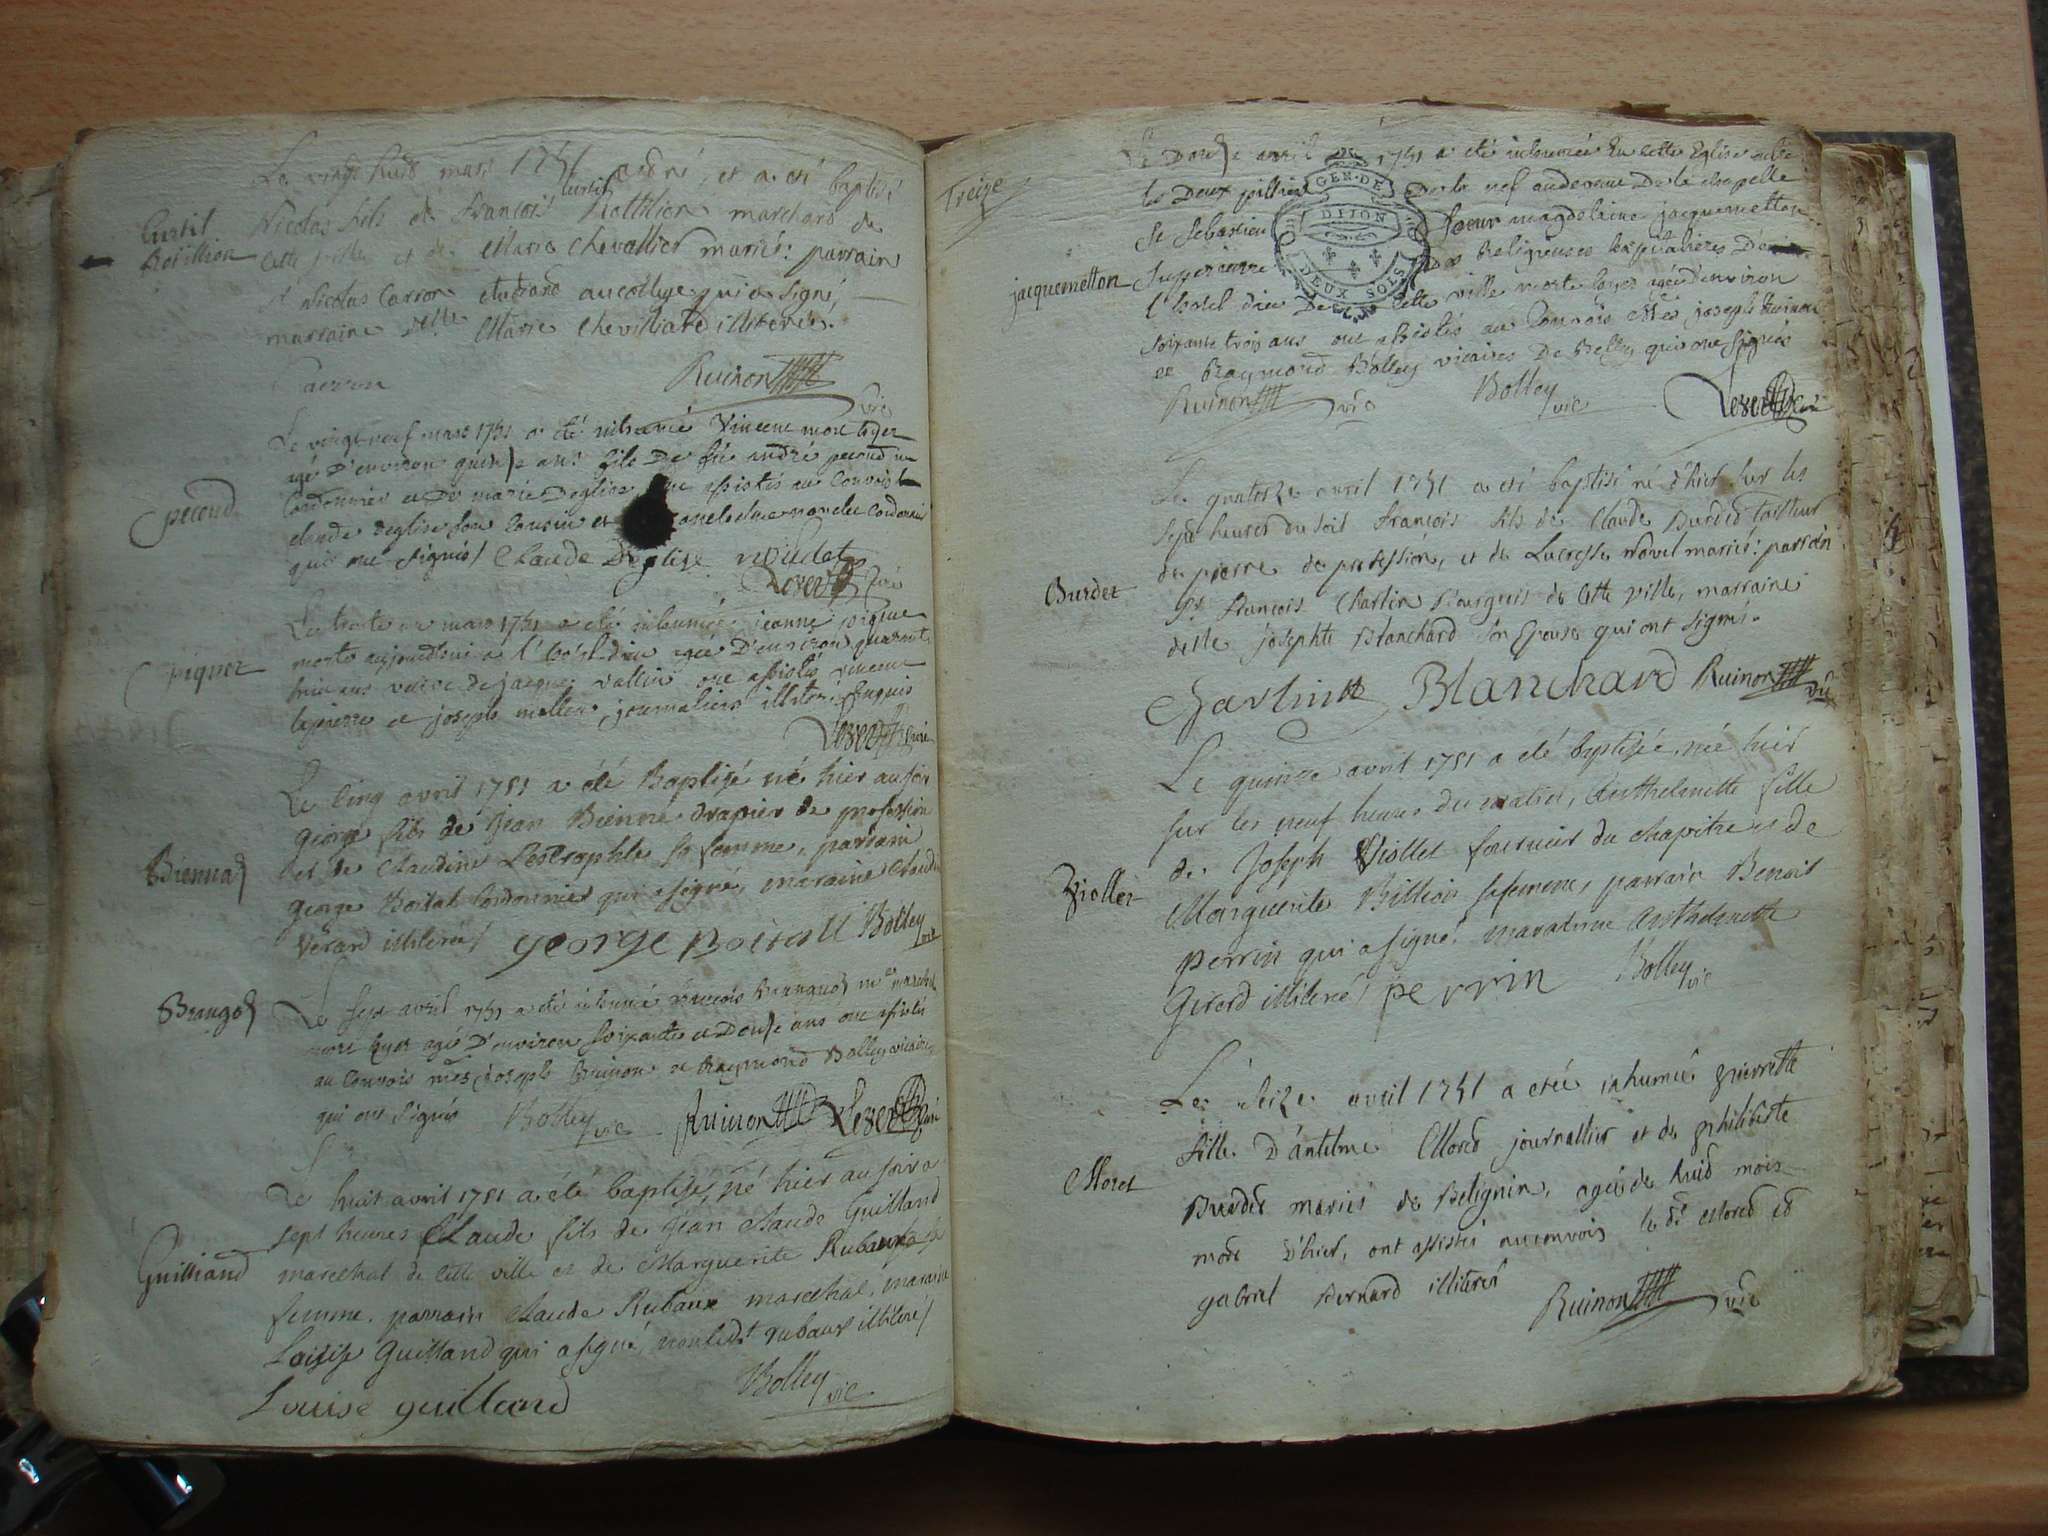 Curtil
Rotillion
Le vingt huid mars 1751 est né, et a eté baptisé
Nicolas fils de françois curtil Rottilion marchand de
cette ville et de Marie Chevallier mariés: parrain
sr Nicolas Carron etudiand au college qui a signé,
marraine delle Marie Chevilliard illiterée.
Carron Ruinon vic
pecond
Le vingt neuf mars 1751 a été inhumé Vincent mort hyer
agé D'environ quinze ans fils De feu andré pecond
Cordonnier et De marie Deglise ont assistés au Convois
claude deglise son Cousin et Cordonnier
qui ont signés / Claude Deglise noudet
curé
piquet
Le trente un mars 1751 a été inhumée jeanne pique
morte aujourdhui a l'hotel-dieu agée D'environ quarante
huit ans veuve de jacques vallin ont assistés vincent
lapierre et joseph mollier journaliers illiterés enquis
curé
Biennaz
Le cinq avril 1751 a été Baptizé né hier au soir
george fils de jean Bienné drapier de profession
et de Claudine sa femme, parrain
george Boitat cordonnier qui a signé, maraine Claudine
verard illiteréz george Boitall Bolley vic
Brungoz
Le sept avril 1751 a été inhumé françois me marchal
mort hyer agé D'environ soixante et Douze ans ont assistés
au Convois mes joseph Ruinon et Raymond Bolley vicaires
qui ont signés Bolley vic Ruinon curé
Guilliand
Le huit avril 1751 a été baptisé, né hier au soir a
sept heures Claude fils de jean claude Guilland
marechal de cette ville et de Marguerite Rubaux sa
femme. parrain claude Rubaux marechal, maraine
Loüise Guilland qui a signé, non ledt rubaux illiteré/
Louise guilland Bolley vic
Treize
jacquemetton
Le Douze avril 1751 a été inhumée En cette Eglise entre
les Deux pilliers De la nef audevant De la chapelle
St Sebastien Soeur magdelaine jacquemetton
Supperieure Des Religieuses hospitalieres De
l'hotel dieu De cette ville morte hyer agée d'environ
soixante trois ans ont assistés au Convois Mes joseph Ruinon
et Raymond Bolley vicaires De Belley qui ont signés
Ruinon vic Bolley vic
GEN. DE
DIJON
DEUX SOLS
Burdet
Le quatorze avril 1751 a eté baptisé né d'hier sur les
sept heures du soir françois fils de Claude Burdet tailleur
de pierre de profession, et de Lucresse Novel mariés: parrain
sr françois Charlin Bourgeois de cette ville, marraine
delle josephte Blanchard son Epouse qui ont signés.
Charlin Blanchard Ruinon vic
Viollet
Le quinze avril 1751 a été baptizée, née hier
sur les neuf heures du matin, Anthelmette fille
de Joseph Viollet fournier du chapitre et de
Marguerite Billion sa femme, parrain Benoit
perrin qui a signé. maraine anthelmette
Girerd illiteré / perrin Bolley vic
Moret
Le seize avril 1751 a etée inhumée pierrette
fille D'antelme Mored journallier et de philiberte
Burdet mariés de Belignin, agée de huid mois
morte d'hier, ont assistés au convois le dt Mored et
gabriel Bernard illiterés
Ruinon vic